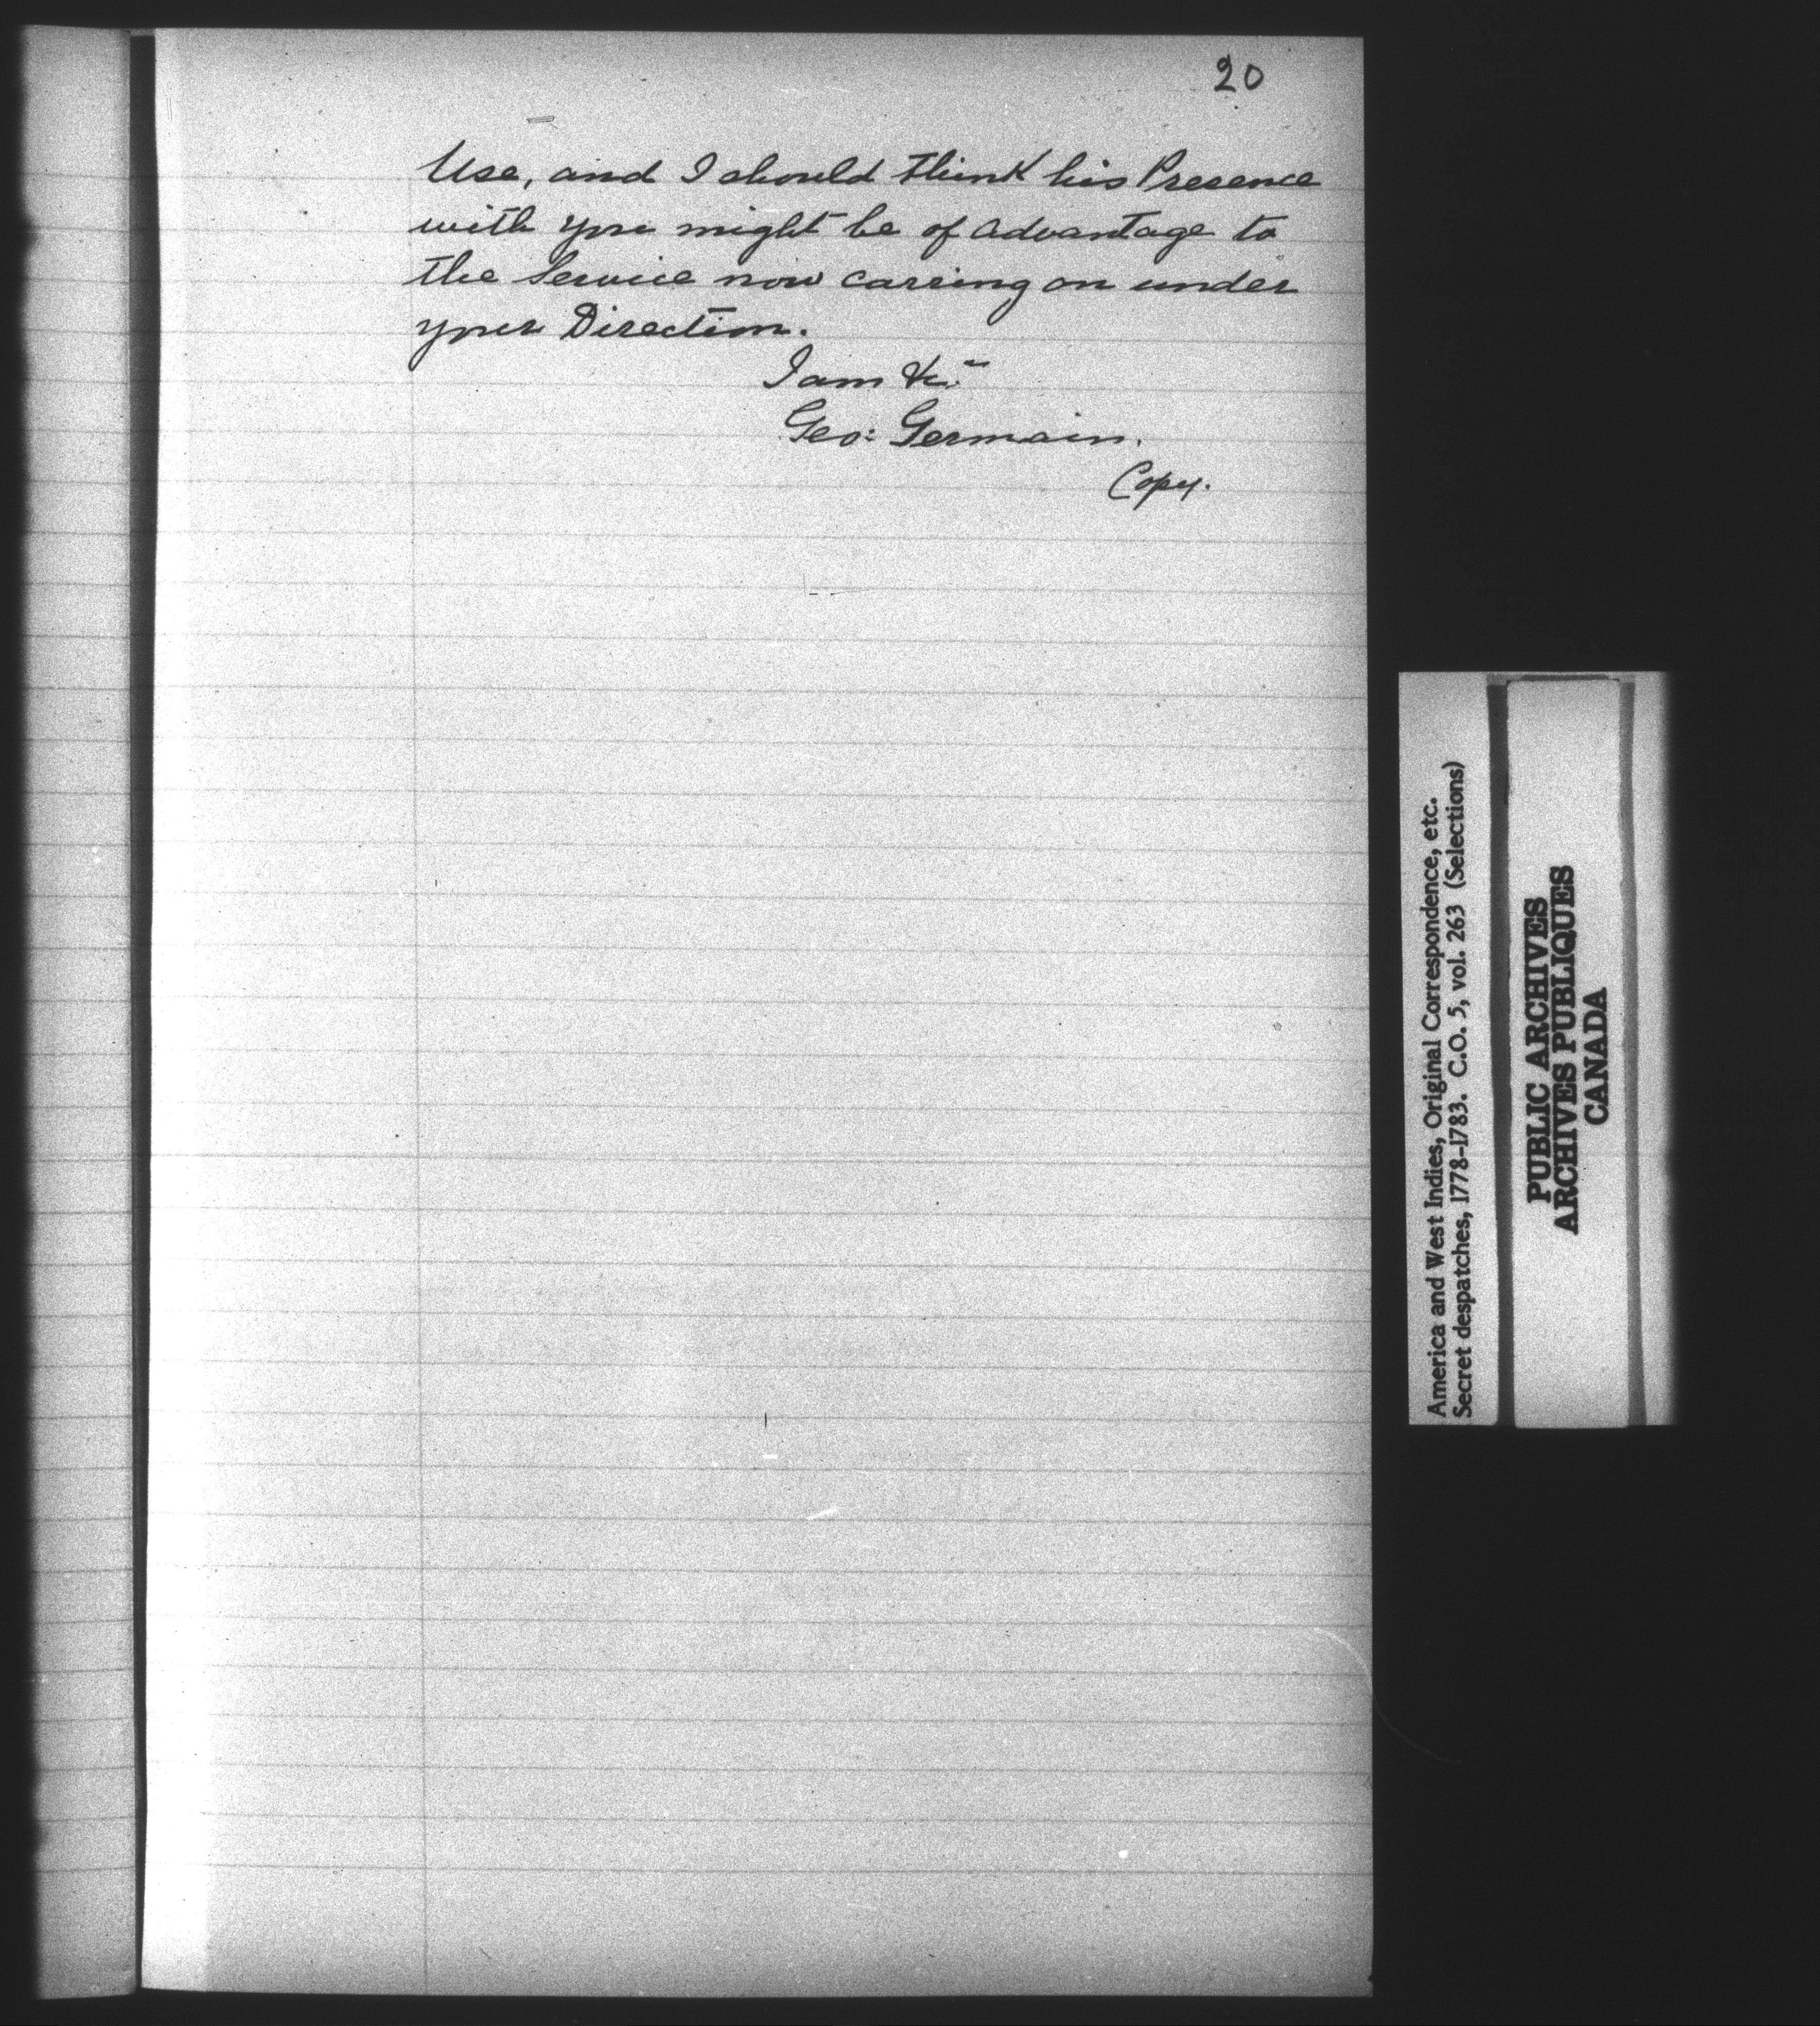 20
Use, and I should think his Presence
with you might be of advantage to
the Service now carring on under
your Direction.
I am &c.
Geo: Germain.
Copy.
America and West Indies, Original Correspondence, etc.
Secret despatches, 1778-1783. C.O. 5, vol. 263 (Selections)
PUBLIC ARCHIVES
ARCHIVES PUBLIQUES
CANADA